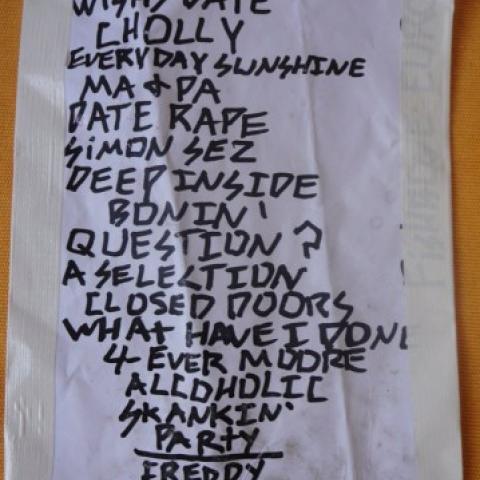 CHOLLY
EVERYDAY SUNSHINE
MA & PA
DATE RAPE
SiMON SEZ
DEEP INSIDE
BONIN'
QUESTION?
A SELECTION
CLOSED DOORS
WHAt HAVE I DONE
4-EVER MOORE
ALCOHOLIC
SKANKIN'
PARtY
FREDDY